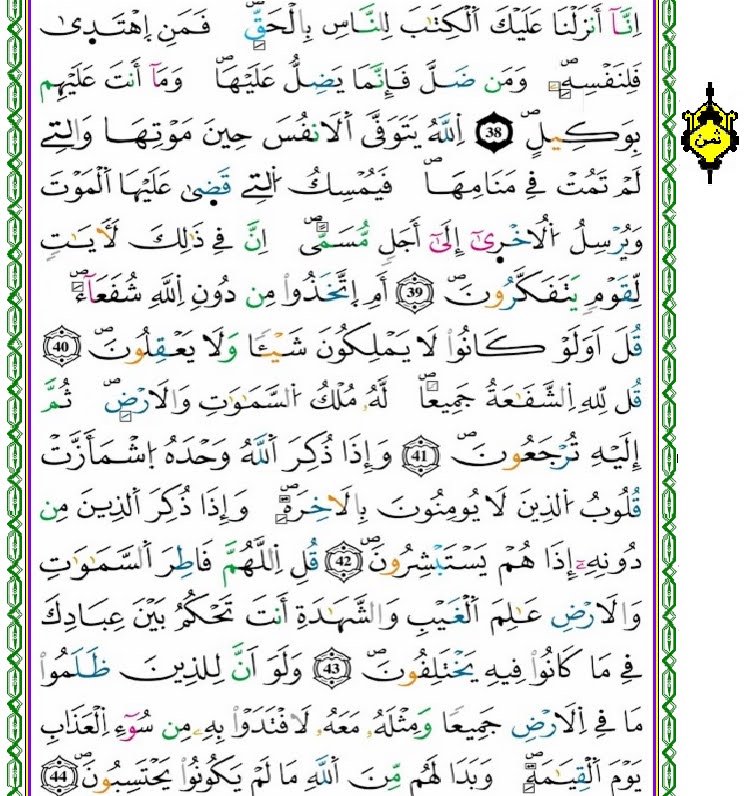 اِنَّآ أَنزَلْنَا عَلَيْكَ اَ۬لْكِتَٰبَ لِلنَّاسِ بِالْحَقِّۖ فَمَنِ اِ۪هْتَد۪ىٰ
فَلِنَفْسِهِۦۖ وَمَن ضَلَّ فَإِنَّمَا يَضِلُّ عَلَيْهَاۖ وَمَآ أَنتَ عَلَيْهِم
بِوَكِيلٍۖ 38 اِ۬للَّهُ يَتَوَفَّى اَ۬لَانفُسَ حِينَ مَوْتِهَا وَالتِے
لَمْ تَمُتْ فِے مَنَامِهَاۖ فَيُمْسِكُ اُ۬لتِے قَض۪ىٰ عَلَيْهَا اَ۬لْمَوْتَ
وَيُرْسِلُ اُ۬لُاخْر۪ىٰٓ إِلَىٰٓ أَجَلٖ مُّسَمّىًۖ اِنَّ فِے ذَٰلِكَ لَأٓيَٰتٖ
لِّقَوْمٖ يَتَفَكَّرُونَۖ 39 أَمِ اِ۪تَّخَذُوا۟ مِن دُونِ اِ۬للَّهِ شُفَعَآءَۖ
قُلَ اَوَلَوْ كَانُوا۟ لَا يَمْلِكُونَ شَيْـٔٗا وَلَا يَعْقِلُونَۖ 40
قُل لِّلهِ اِ۬لشَّفَٰعَةُ جَمِيعاٗۖ لَّهُۥ مُلْكُ اُ۬لسَّمَٰوَٰتِ وَالَارْضِۖ ثُمَّ
إِلَيْهِ تُرْجَعُونَۖ 41 وَإِذَا ذُكِرَ اَ۬للَّهُ وَحْدَهُ اُ۪شْمَأَزَّتْ
قُلُوبُ اُ۬لذِينَ لَا يُومِنُونَ بِالَاخِرَةِۖ وَإِذَا ذُكِرَ اَ۬لذِينَ مِن
دُونِهِۦٓ إِذَا هُمْ يَسْتَبْشِرُونَۖ 42 قُلِ اِ۬للَّهُمَّ فَاطِرَ اَ۬لسَّمَٰوَٰتِ
وَالَارْضِ عَٰلِمَ اَ۬لْغَيْبِ وَالشَّهَٰدَةِ أَنتَ تَحْكُمُ بَيْنَ عِبَادِكَ
فِے مَا كَانُوا۟ فِيهِ يَخْتَلِفُونَۖ 43 وَلَوَ اَنَّ لِلذِينَ ظَلَمُوا۟
مَا فِے اِ۬لَارْضِ جَمِيعٗا وَمِثْلَهُۥ مَعَهُۥ لَافْتَدَوْا۟ بِهِۦ مِن سُوٓءِ اِ۬لْعَذَابِ
يَوْمَ اَ۬لْقِيَٰمَةِۖ وَبَدَا لَهُم مِّنَ اَ۬للَّهِ مَا لَمْ يَكُونُوا۟ يَحْتَسِبُونَۖ 44
ثمن